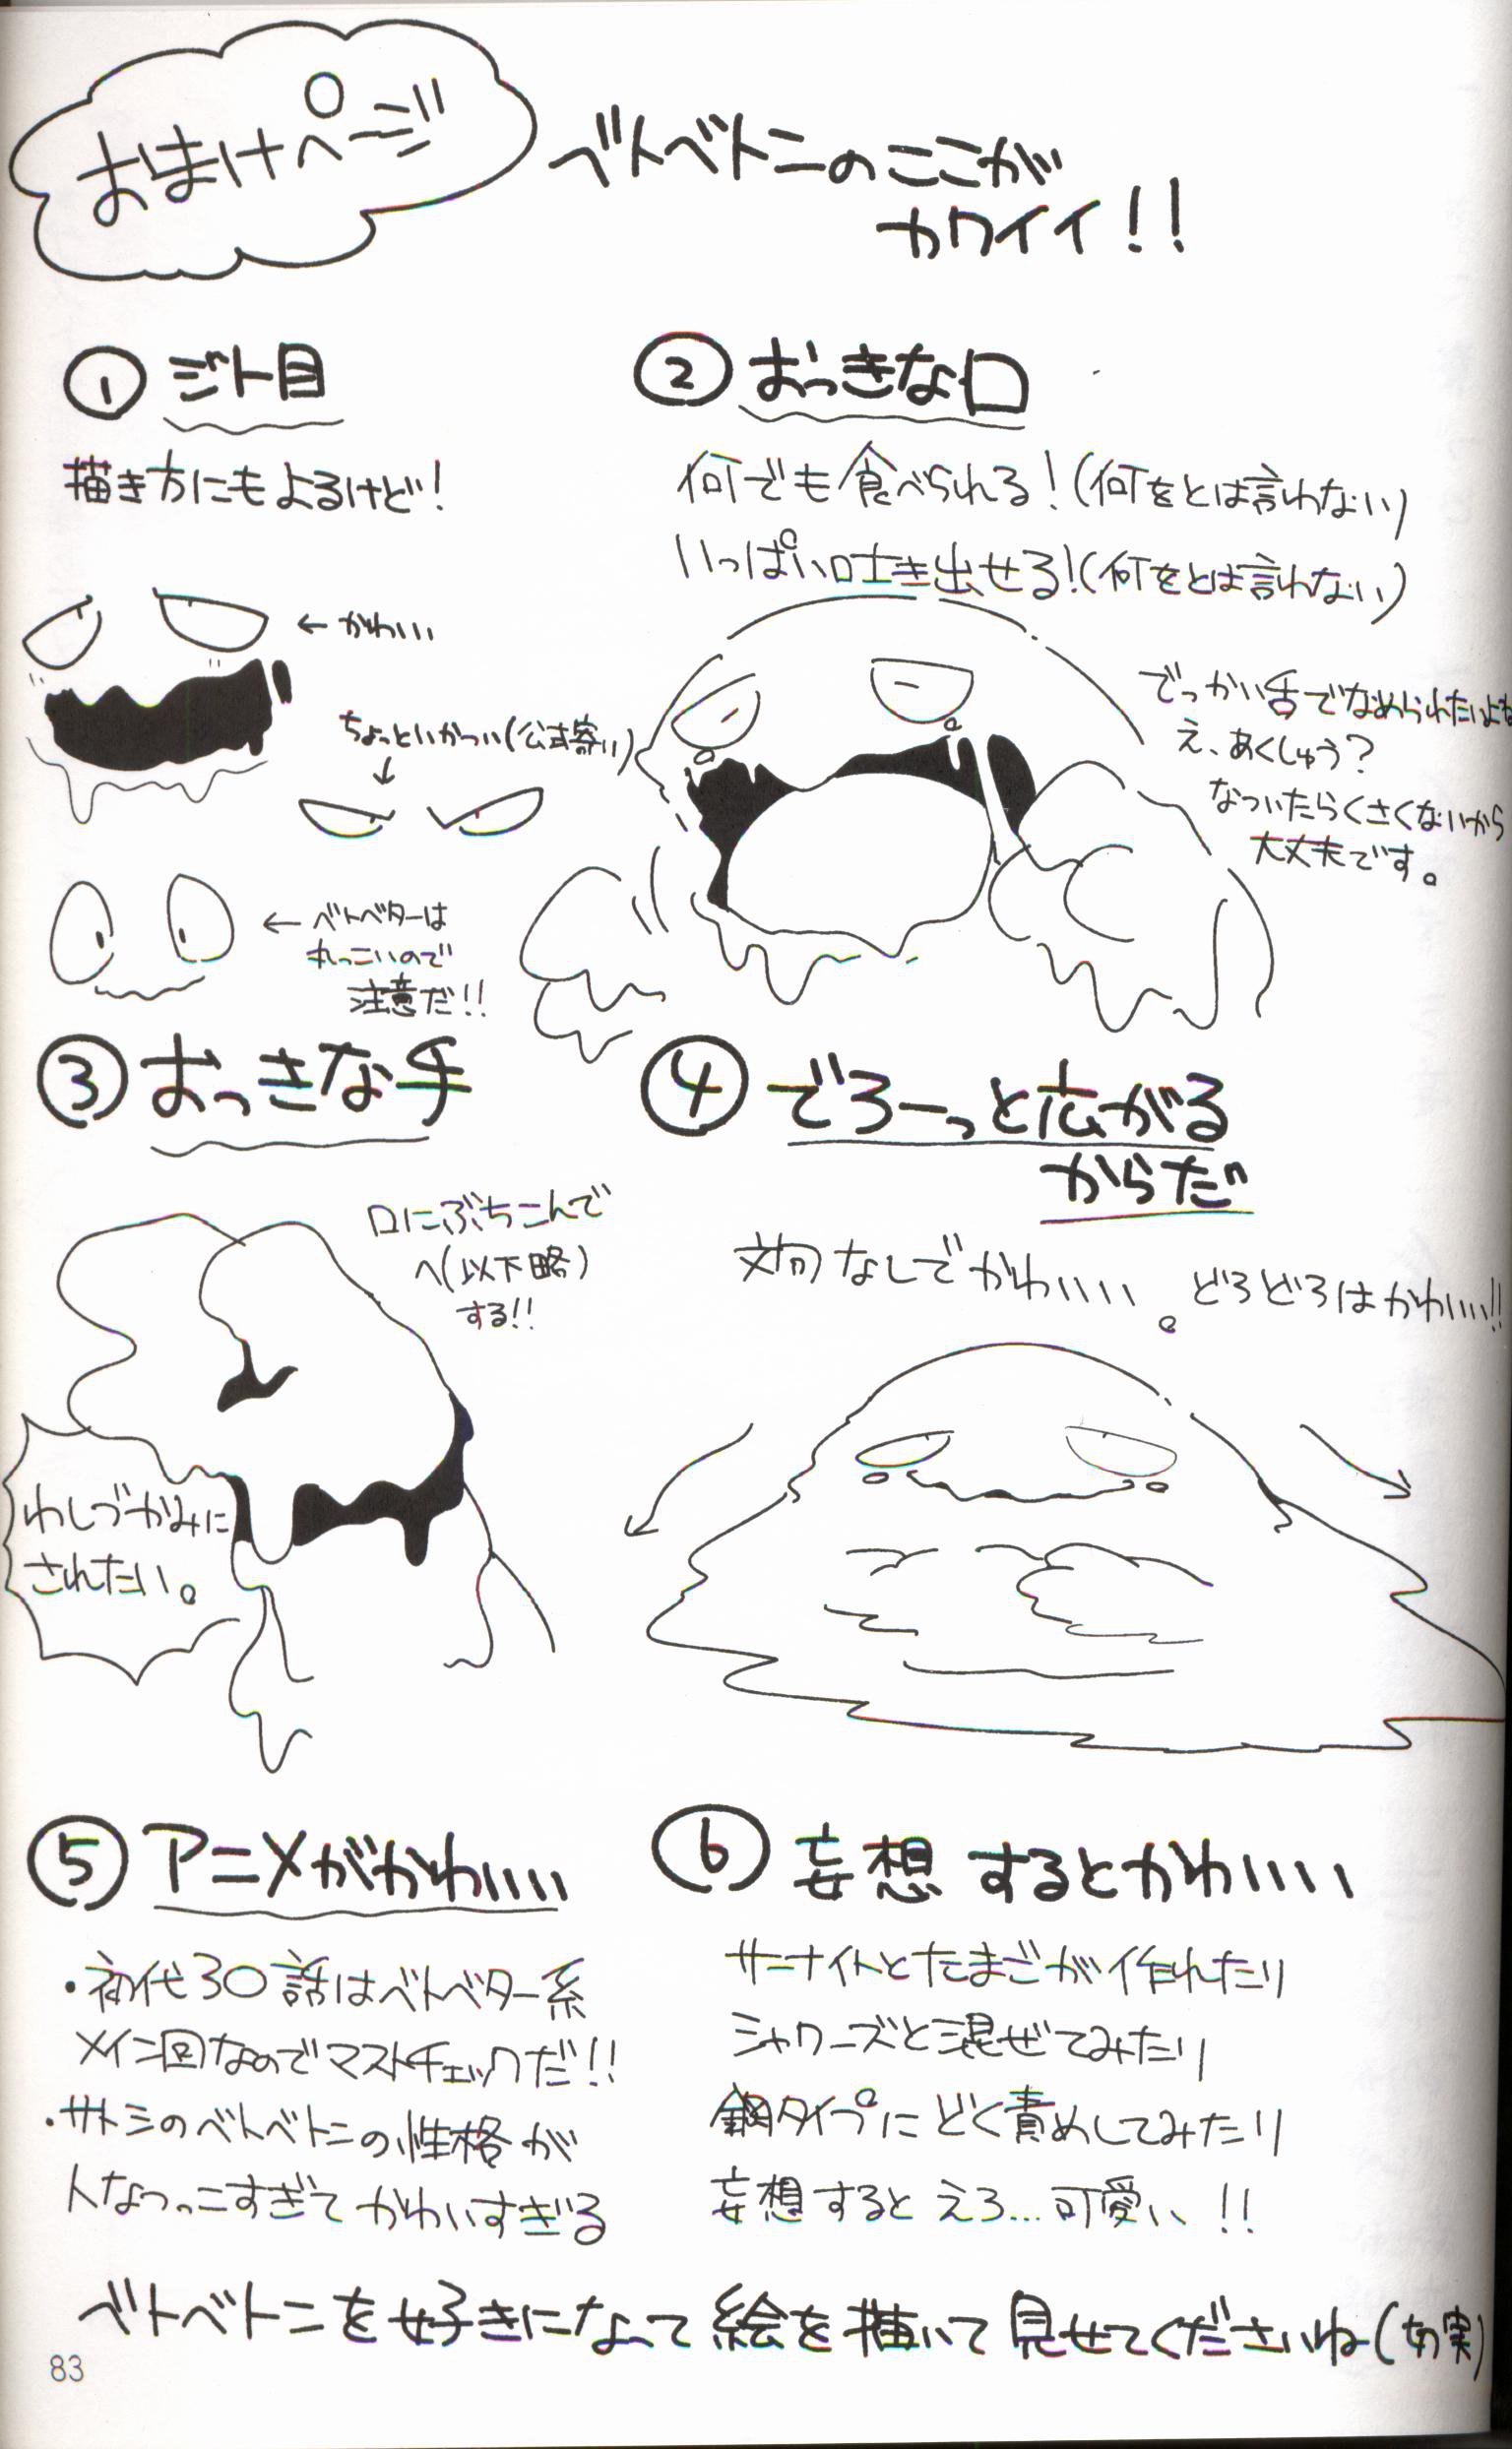 おまけページ
ベトベトンのここが
カワイイ!!
① ジト目
描き方にもよるけど!
←かわいい
ちょっといかつい(公式寄り)
↓
←ベトベターは
丸っこいので
注意だ!!
② おっきな口
何でも食べられる!(何をとは言わない)
いっぱい吐き出せる!(何をとは言わない)
でっかい舌でなめられたいよね
え、あくしゅう?
なついたらくさくないから
大丈夫です。
③ おっきな手
口にぶちこんで
へ(以下略)
する!!
わしづかみに
されたい。
④ でろーっと広がる
からだ
文句なしでかわいい。どろどろはかわいい!!
⑤ アニメがかわいい
・初代30話はベトベター系
メイン回なのでマストチェックだ!!
・サトシのベトベトンの性格が
人なつっこすぎてかわいすぎる
⑥ 妄想するとかわいい
サーナイトとたまごが作れたり
シャワーズと混ぜてみたり
鋼タイプにどく責めしてみたり
妄想するとえろ…可愛い!!
ベトベトンを好きになって絵を描いて見せてくださいね(切実)
83